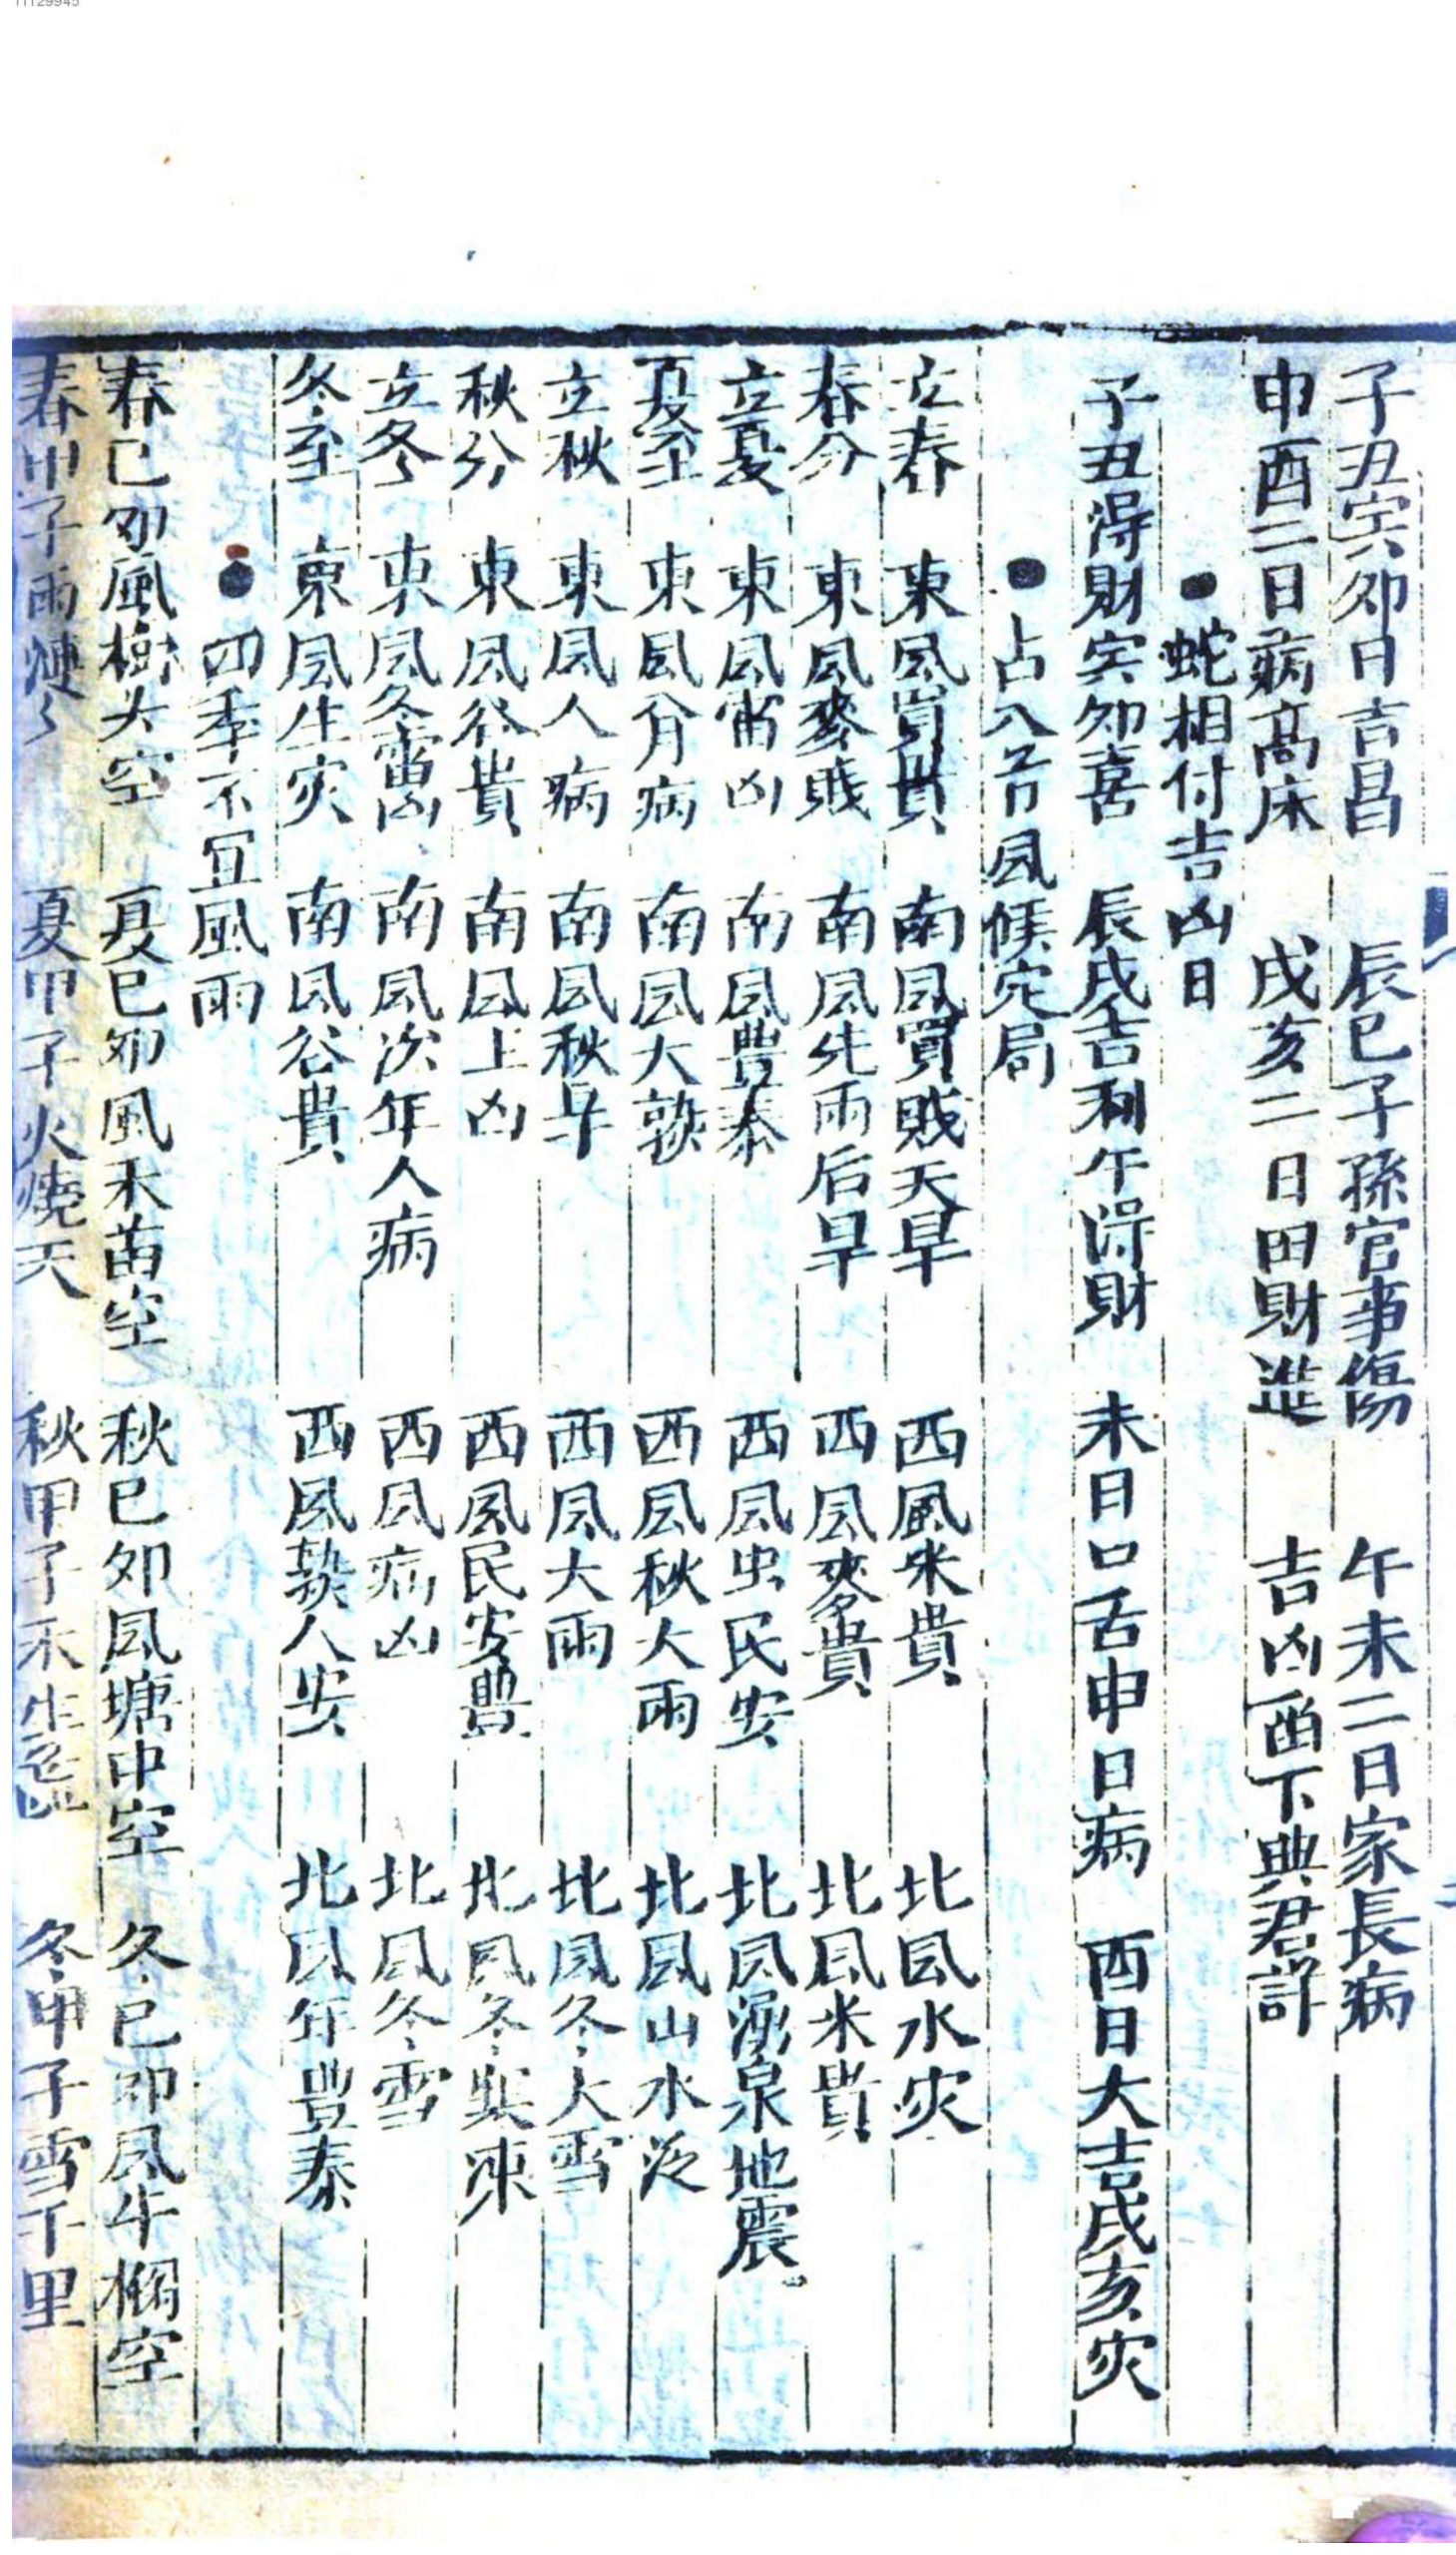 11129945
子丑寅卯日吉昌 辰巳子孫官事傷 午未二日家長病
申酉二日病高床 戌亥二日田財進 吉凶酉下典君詳
●蛇相付吉凶日
子丑淂財寅卯喜 辰戌吉利午淂財 未日口舌申日病 酉日大吉戌亥灾
●占八芇凬候定局
立春 東凬買貴 南凬買賎天旱 西風米貴 北凬水灾
春分 東凬麥賎 南凬先雨后旱 西凬麥貴 北凬米貴
立夏 東凬雷凶 南凬豊泰 西凬虫民安 北凬湧泉地震
夏至 東凬病 南凬大 西凬秋大雨 北凬山水泛
立秋 東凬人病 南凬秋旱 西凬大雨 北凬冬大雪
秋分 東凬谷貴 南凬上凶 西凬民安豊 北凬冬凍
立冬 東凬冬雷凶 南凬次年人病 西凬病凶 北凬冬雪
冬至 東凬生灾 南凬谷貴 西凬人安 北凬年豊泰
●四季不宜風雨
春巳卯風樹头空 夏巳卯風禾苗空 秋巳卯凬塘中空 冬巳卯凬牛欄空
春甲子雨 夏甲子火燒天 秋甲子禾生 冬甲子雪千里